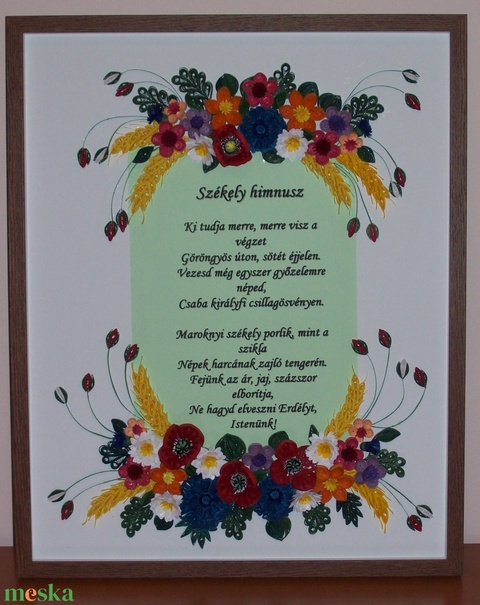 Székely himnusz
Ki tudja merre, merre visz a
végzet
Göröngyös úton, sötét éjjelen.
Vezesd még egyszer győzelemre
néped,
Csaba királyfi csillagösvényen.
Maroknyi székely porlik, mint a
szikla
Népek harcának zajló tengerén.
Fejünk az ár, jaj, százszor
elborítja,
Ne hagyd elveszni Erdélyt,
Istenünk!
meska